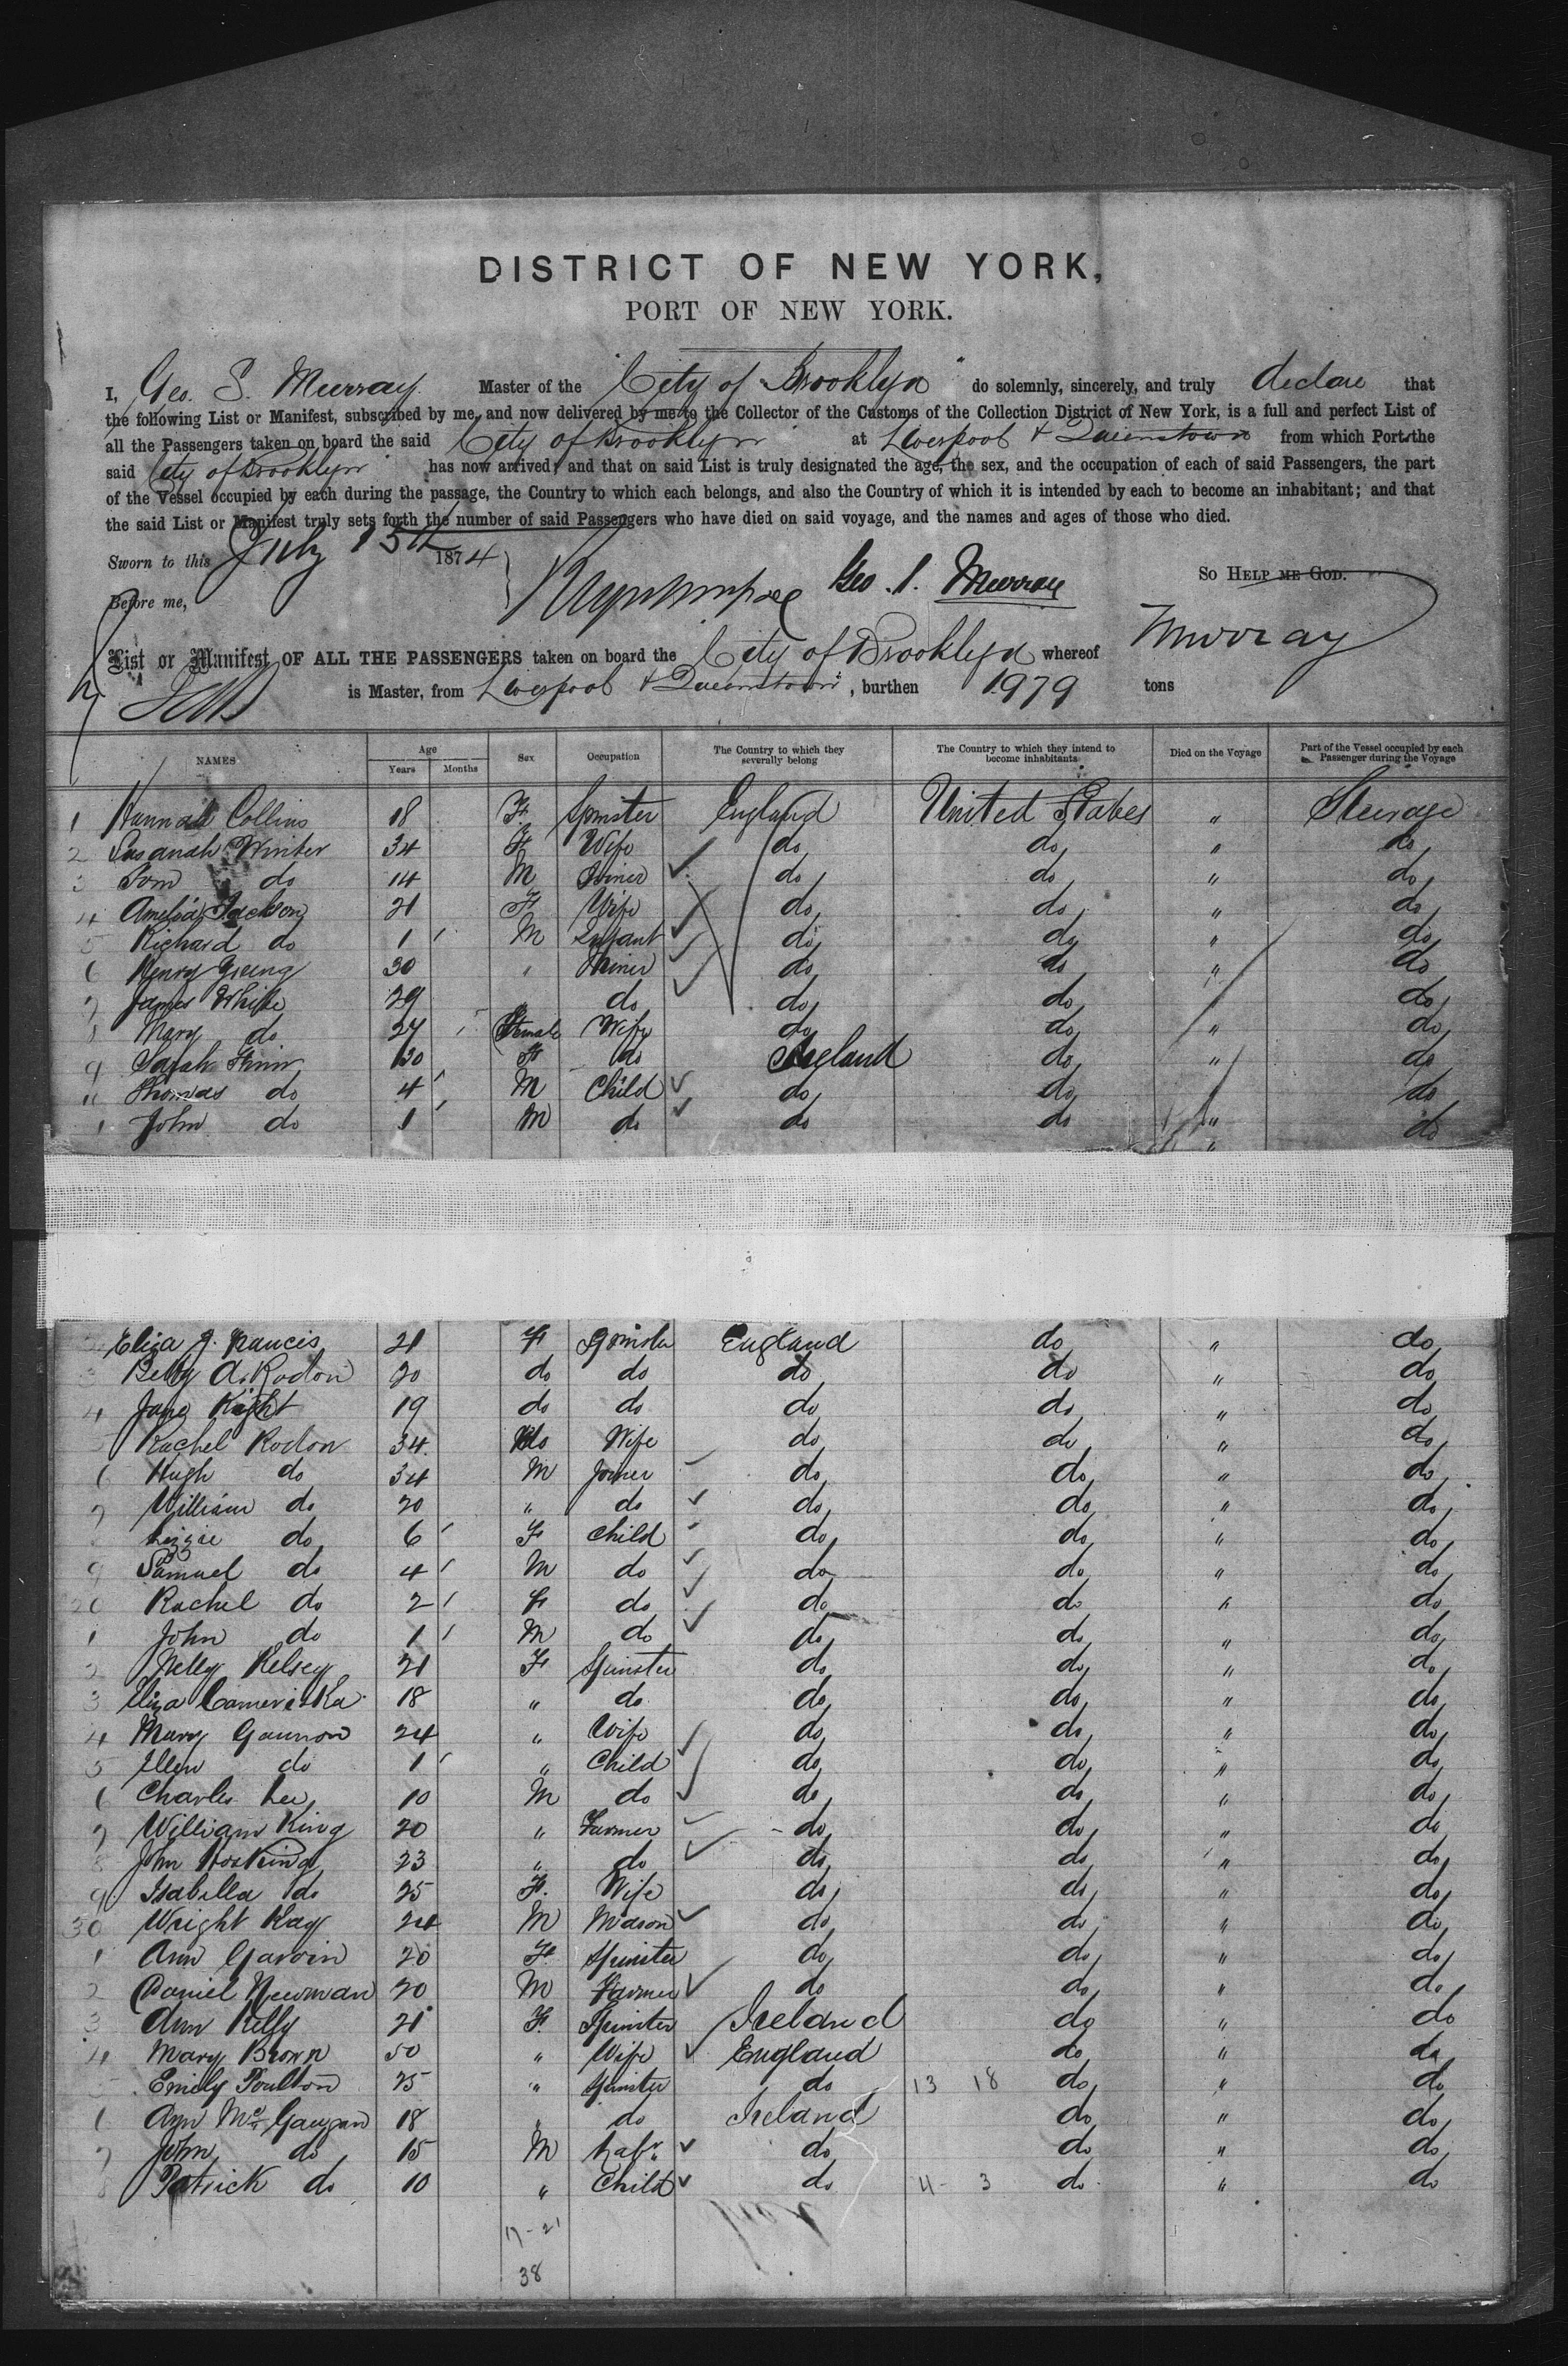 DISTRICT OF NEW YORK,
PORT OF NEW YORK.
I, Geo. S. Murray Master of the "City of Brooklyn" do solemnly, sincerely, and truly declare that
the following List or Manifest, subscribed by me, and now delivered by me to the Collector of the Customs of the Collection District of New York, is a full and perfect List of
all the Passengers taken on board the said City of Brooklyn at Liverpool & Queenstown from which Port the
said City of Brooklyn has now arrived; and that on said List is truly designated the age, the sex, and the occupation of each of said Passengers, the part
of the Vessel occupied by each during the passage, the Country to which each belongs, and also the Country of which it is intended by each to become an inhabitant; and that
the said List or Manifest truly sets forth the number of said Passengers who have died on said voyage, and the names and ages of those who died.
Sworn to this July 15th 1874
Geo. S. Murray
So HELP ME GOD.
Before me,
List or Manifest OF ALL THE PASSENGERS taken on board the City of Brooklyn whereof Murray
is Master, from Liverpool & Queenstown, burthen 1979 tons
NAMES Age Years Months Sex Occupation The Country to which they severally belong The Country to which they intend to become inhabitants Died on the Voyage Part of the Vessel occupied by each Passenger during the Voyage
1 Hannah Collins 18 F Spinster England United States " Steerage
2 Susanah Winter 34 F Wife do do " do
3 Tom do 14 M do do " do
4 Amelia Jackson 21 F Wife do do " do
5 Richard do 1 M Infant do do " do
6 Henry 30 " Miner do do " do
7 James White 29 " do do do do
8 Mary do 27 Female Wife do do " do
9 Sarah 30 F do Ireland do " do
Thomas do 4 M Child do do " do
1 John do 1 M do do do " do
Eliza J. Francis 21 F Spinster England do " do
3 Betty A. Rodon 20 do do do do " do
4 Jane Kight 19 do do do do " do
5 Rachel Rodon 34 do Wife do do " do
6 Hugh do 34 M Joiner do do " do
7 William do 20 " do do do " do
Lizzie do 6 F Child do do " do
9 Samuel do 4 M do do do " do
20 Rachel do 2 F do do do " do
1 John do 1 M do do do " do
2 Nelly Kelsey 21 F Spinster do do " do
3 Eliza 18 " do do do " do
4 Mary Gannon 24 " Wife do do " do
5 Ellen do 1 " Child do do " do
6 Charles Lee 10 M do do do " do
7 William King 20 " Farmer do do " do
8 John Hosking 23 " do do do " do
9 Isabella do 25 F. Wife do do " do
30 Wright Kay 24 M Mason do do " do
1 Ann Garvin 20 F Spinster do do " do
2 Daniel Newman 20 M Farmer do do " do
3 Ann Kelly 21 F. Spinster Ireland do " do
4 Mary Brown 50 " Wife England do " do
5 Emily Poulton 25 " Spinster do 13 18 do " do
6 Ann 18 " do Ireland do " do
7 John do 15 M Labr. do do " do
8 Patrick do 10 " Child do 4 - 3 do " do
17 - 21
38